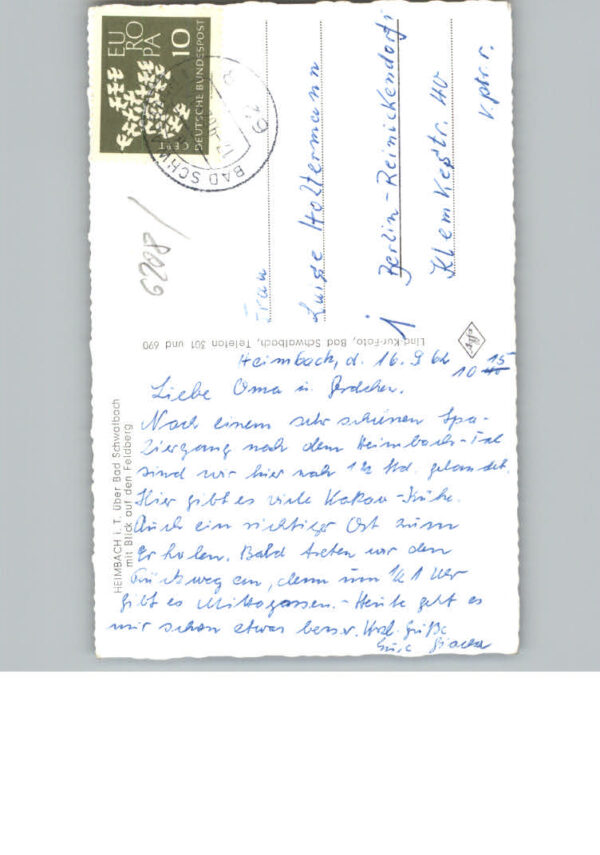 EUROPA
10
DEUTSCHE BUNDESPOST
CEPT
BAD SCHW
6208
Frau
Luise Holtermann
1 Berlin-Reinickendorf
Klemkestr. 40
v. ptr. r.
Lind-Kur-Foto, Bad Schwalbach, Telefon 301 und 690
HEIMBACH i. T. über Bad Schwalbach
mit Blick auf den Feldberg
Heimbach, d. 16. 9. 62
10 15
Liebe Oma u.
Nach einem sehr schönen Spa-
ziergang nach dem Heimbach-Tal
sind wir hier nach 1½ Std. gelandet.
Hier gibt es viele Kakao-Kühe.
Auch ein richtiger Ort zum
Erholen. Bald treten wir den
Rückweg an, denn um ½ 1 Uhr
gibt es Mittagessen. - Heute geht es
mir schon etwas besser. Herzl. Grüße